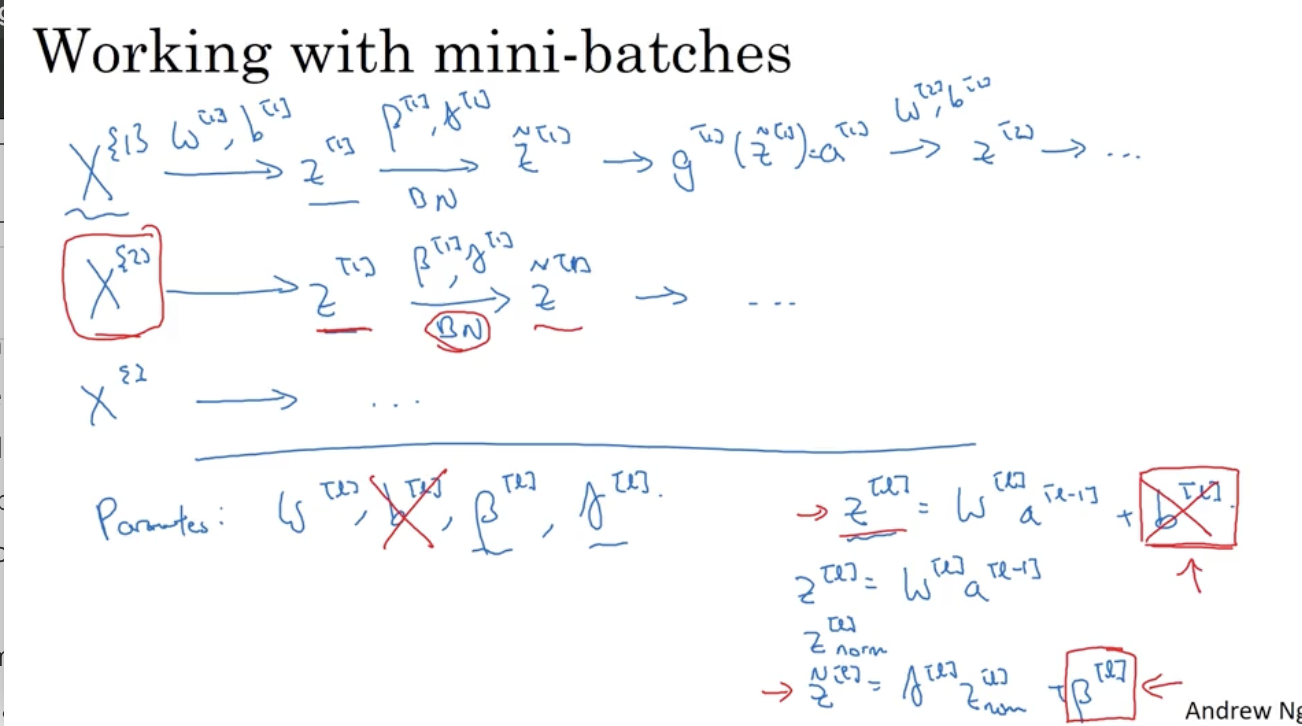 Working with mini-batches
X^{1} →(W^[1], b^[1]) z^[1] →(β^[1], γ^[1]) BN z̃^[1] → g^[1](z̃^[1]) = a^[1] →(W^[2], b^[2]) z^[2] → ...
X^{2} → z^[1] →(β^[1], γ^[1]) BN z̃^[1] → ...
X^{} → ...
Parameters: W^[l], b^[l], β^[l], γ^[l].
→ z^[l] = W^[l] a^[l-1] + b^[l].
z^[l] = W^[l] a^[l-1]
z^[l] norm
→ z̃^[l] = γ^[l] z^[l] norm + β^[l] ←
Andrew Ng